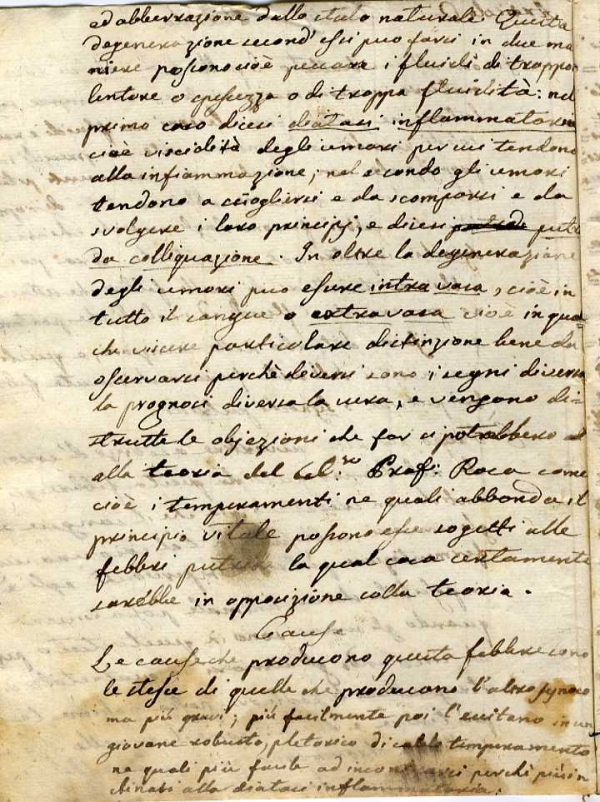 ed abberrazione dallo stato naturale. Questa
degenerazione second' essi puo farsi in due ma
niere possono cioè peccare i fluidi di troppo
lentore o spessezza o di troppa fluidità: nel
primo caso dicesi diatasi inflammatoria
cioè viscidità degli umori per cui tendono
alla infiammazione; nel secondo gli umori
tendono a sciogliersi e da scomporsi e da
svolgere i loro principj, e dicesi putri
da colliquazione. In oltre la degenerazione
degli umori puo essere intravasa, cioè in
tutto il sangue o extravasa cioè in qual
che viscere particolare distinzione bene da
osservarsi perchè diversi sono i segni diversa
la prognosi diversa la cura, e vengono di
strutte le objezioni che far si potrebbero al
alla teoria del Cel.re Prof: Rosa come
cioè i temperamenti ne quali abbonda il
principio vitale possono esser sogetti alle
febbri putride la qual cosa certamente
sarebbe in opposizione colla teoria.
Cause
Le cause che producono questa febbre sono
le stesse di quelle che producono l'altro synoco
ma più gravi; più facilmente poi l'eccitano in un
giovane robusto, pletorico di caldo temperamento
ne quali più facile ad incontrarsi perchè più in
clinati alla diatasi inflammatoria.